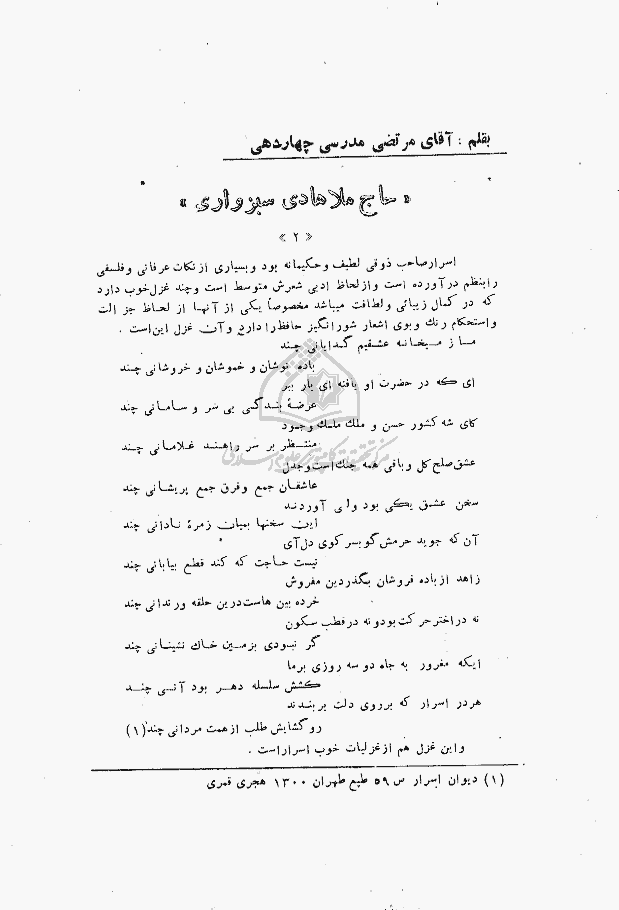 بقلم : آقای مرتضی مدرسی چهاردهی
« حاج ملا هادی سبزواری »
« ۲ »
اسرار صاحب ذوقی لطیف و حکیمانه بود و بسیاری از نکات عرفانی و فلسفی
را بنظم در آورده است و از لحاظ ادبی شعرش متوسط است و چند غزل خوب دارد
که در کمال زیبائی و لطافت میباشد مخصوصاً یکی از آنها از لحاظ جزالت
و استحکام رنك و بوی اشعار شورانگیز حافظ را دارد و آن غزل این است .
ما ز میخانه عشقیم گدایانی چند
باده نوشان و خموشان و خروشانی چند
ای که در حضرت او یافته ای بار ببر
عرضهٔ بندگی بی سر و سامانی چند
کای شه کشور حسن و ملك ملك وجود
منتظر بر سر راهند غلامانی چند
عشق صلح کل و باقی همه جنك است و جدل
عاشقان جمع و فرق جمع پریشانی چند
سخن عشق یکی بود ولی آوردند
این سخنها بمیان زمرهٔ نادانی چند
آن که جوید حرمش گو بسر کوی دل آی
نیست حاجت که کند قطع بیابانی چند
زاهد از باده فروشان بگذر دین مفروش
خرده بین هاست درین حلقه و رندانی چند
نه در اختر حرکت بود و نه در قطب سکون
گر نبودی بزمین خاك نشینانی چند
ایکه مغرور به جاه دو سه روزی بر ما
کشش سلسله دهر بود آنی چند
هر در اسرار که بر روی دلت بر بندند
رو گشایش طلب از همت مردانی چند (۱)
و این غزل هم از غزلیات خوب اسرار است .
(۱) دیوان اسرار س ۵۹ طبع طهران ۱۳۰۰ هجری قمری